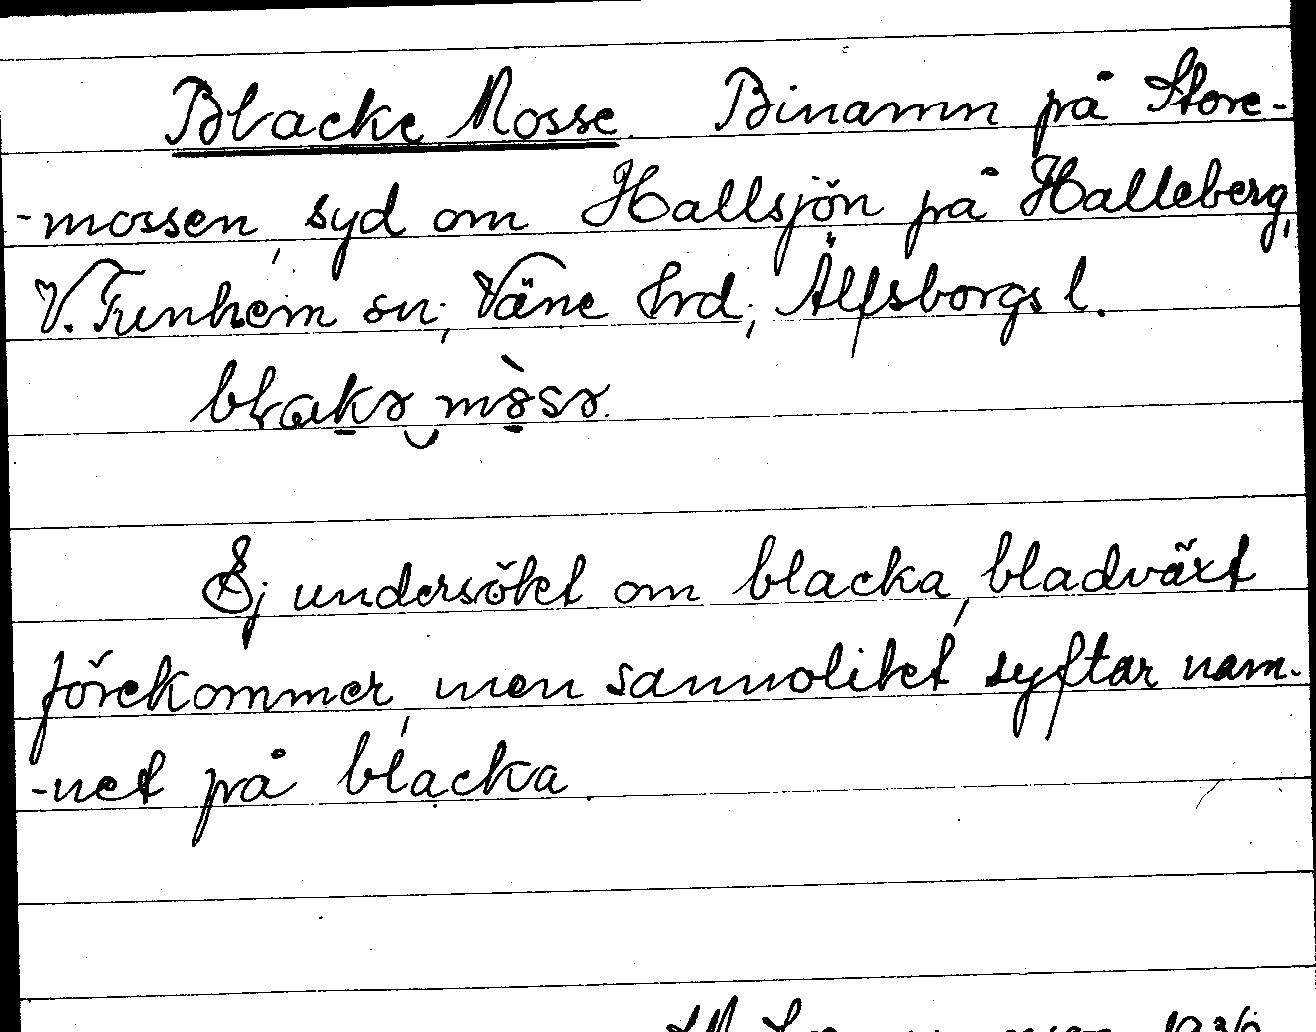 Blacke Mosse. Binamn på Store-
-mossen, syd om Hallsjön på Halleberg,
V. Tunhem sn; Väne Hrd; Älfsborgs l.

Ej undersöket om blacka, bladväxt
förekommer, men sannoliket syftar nam-
-net på blacka.
1936